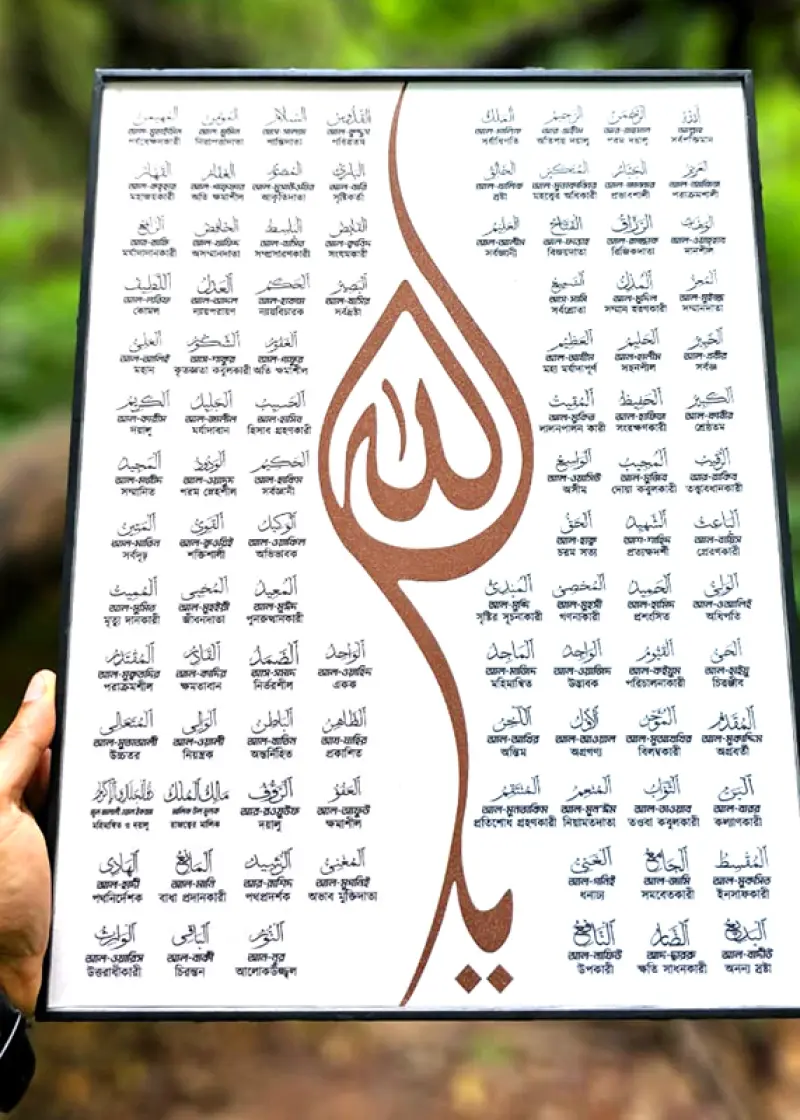 الله
আল্লাহ
সর্বশক্তিমান
الرحمن
আর-রহমান
পরম দয়ালু
الرحيم
আর-রহীম
অতিশয় দয়ালু
الملك
আল-মালিক
সর্বাধিপতি
القدوس
আল-কুদ্দুস
পবিত্রতম
السلام
আস-সালাম
শান্তিদাতা
المؤمن
আল-মুমিন
নিরাপত্তাদাতা
المهيمن
আল-মুহাইমিন
পর্যবেক্ষনকারী
العزيز
আল-আজিজ
পরাক্রমশালী
الجبار
আল-জাব্বার
প্রভাবশালী
المتكبر
আল-মুতাকাব্বির
মহাত্বুর অধিকারী
الخالق
আল-খালিক
স্রষ্টা
البارئ
আল-বারি
সৃষ্টিকর্তা
المصور
আল-মুসাউওয়ির
আকৃতিদাতা
الغفار
আল-গাফফার
অতি ক্ষমাশীল
القهار
আল-কাহহার
মহাক্ষয়কারী
الوهاب
আল-ওয়াহহাব
দানশীল
الرزاق
আর-রাজ্জাক
রিজিকদাতা
الفتاح
আল-ফাত্তাহ
বিজয়দাতা
العليم
আল-আলীম
সর্বজ্ঞানী
القابض
আল-ক্বাবিদ
সংযমকারী
الباسط
আল-বাসিত
সম্প্রসারণকারী
الخافض
আল-খাফিদ
অসম্মানদাতা
الرافع
আর-রাফি
মর্যাদাদানকারী
المعز
আল-মুইজ্ব
সম্মানদাতা
المذل
আল-মুদিল
সম্মান হরণকারী
السميع
আস-সামি
সর্বশ্রোতা
البصير
আল-বাসির
সর্বদ্রষ্টা
الحكم
আল-হাকাম
ন্যায়বিচারক
العدل
আল-আদল
ন্যায়পরায়ণ
اللطيف
আল-লতিফ
কোমল
الخبير
আল-খবীর
সর্বজ্ঞ
الحليم
আল-হালীম
সহনশীল
العظيم
আল-আযীম
মহা মর্যাদাপূর্ণ
الغفور
আল-গাফুর
অতি ক্ষমাশীল
الشكور
আস-শাকুর
কৃতজ্ঞতা কবুলকারী
العلي
আল-আলিই
মহান
الكبير
আল-কাবীর
শ্রেষ্ঠতম
الحفيظ
আল-হাফিজ
সংরক্ষণকারী
المقيت
আল-মুকিত
লালনপালন কারী
الله
الحسيب
আল-হাসিব
হিসাব গ্রহণকারী
الجليل
আল-জালীল
মর্যাদাবান
الكريم
আল-কারীম
দয়ালু
الرقيب
আর-রাকিব
তত্ত্বাবধানকারী
المجيب
আল-মুজিব
দোয়া কবুলকারী
الواسع
আল-ওয়াসিউ
অসীম
الحكيم
আল-হাকিম
সর্বজ্ঞানী
الودود
আল-ওয়াদুদ
পরম স্নেহশীল
المجيد
আল-মাজীদ
সম্মানিত
الباعث
আল-বায়িস
প্রেরণকারী
الشهيد
আশ-শাহিদ
প্রত্যক্ষদর্শী
الحق
আল-হাক্ব
চরম সত্য
الوكيل
আল-ওয়াকিল
অভিভাবক
القوي
আল-কুওয়িই
শক্তিশালী
المتين
আল-মাতিন
সর্বদৃঢ়
الولي
আল-ওআলিই
অধিপতি
الحميد
আল-হামিদ
প্রশংসিত
المحصي
আল-মুহসী
গণনাকারী
المبدئ
আল-মুব্দি
সৃষ্টির সূচনাকারী
المعيد
আল-মুঈদ
পুনরুত্থানকারী
المحيي
আল-মুহইয়ী
জীবনদাতা
المميت
আল-মুমিত
মৃত্যু দানকারী
الحي
আল-হাইয়ু
চিরঞ্জীব
القيوم
আল-কাইয়ুম
পরিচালনাকারী
الواجد
আল-ওয়াজিদ
উদ্ভাবক
الماجد
আল-মাজিদ
মহিমান্বিত
الواحد
আল-ওয়াহিদ
একক
الصمد
আস-সমাদ
নির্ভরশীল
القادر
আল-কাদির
ক্ষমতাবান
المقتدر
আল-মুক্বতদির
পরাক্রমশীল
المقدم
আল-মুকাদ্দিম
অগ্রবর্তী
المؤخر
আল-মুআখখির
বিলম্বকারী
الأول
আল-আওয়াল
অগ্রগণ্য
الآخر
আল-আখির
অন্তিম
الظاهر
আয-যাহির
প্রকাশিত
الباطن
আল-বাতিন
অন্তর্নিহিত
الوالي
আল-ওয়ালী
নিয়ন্ত্রক
المتعالي
আল-মুতাআলী
উচ্চতর
البر
আল-বারর
কল্যাণকারী
التواب
আত-তাওয়াব
তওবা কবুলকারী
المنعم
আল-মুনঈম
নিয়ামতদাতা
المنتقم
আল-মুনতাকিম
প্রতিশোধ গ্রহণকারী
العفو
আল-আফুউ
ক্ষমাশীল
الرؤوف
আর-রওয়ুউফ
দয়ালু
مالك الملك
মালিক উল মুলক
রাজত্বের মালিক
মহিমান্বিত ও দয়ালু
المقسط
আল-মুকসিত
ইনসাফকারী
الجامع
আল-জামি
সমবেতকারী
الغني
আল-গানিই
ধনাঢ্য
المغني
আল-মুগনিই
অভাব মুক্তিদাতা
الرشيد
আর-রাশিদ
পথপ্রদর্শক
المانع
আল-মানি
বাধা প্রদানকারী
الهادي
আল-হাদী
পথনির্দেশক
البديع
আল-বাদীউ
অনন্য স্রষ্টা
الضار
আদ-দ্বারক
ক্ষতি সাধনকারী
النافع
আল-নাফিউ
উপকারী
يا
النور
আন-নূর
আলোকউজ্জ্বল
الباقي
আল-বাকী
চিরন্তন
الوارث
আল-ওয়ারিস
উত্তরাধীকারী